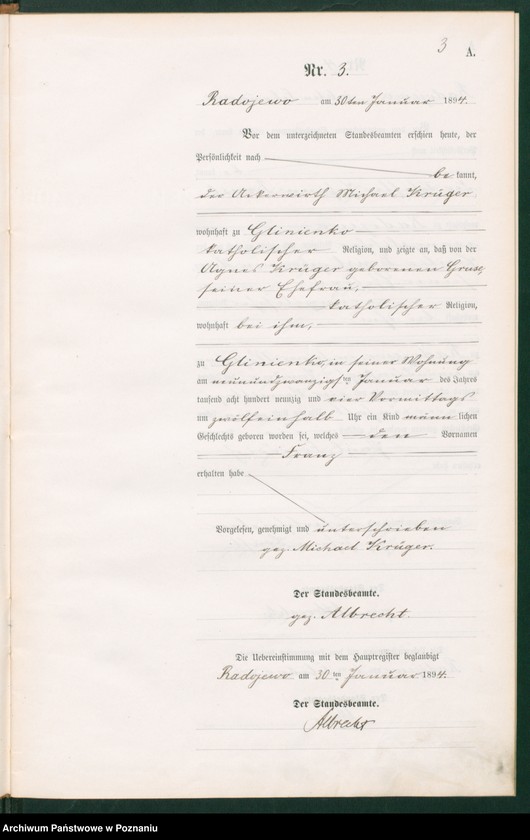 3
A.
Nr. 3.
Radojewo am 30ten Januar 1894.
Vor dem unterzeichneten Standesbeamten erschien heute, der
Persönlichkeit nach
be kannt,
der Ackerwirth Michael Krüger
wohnhaft zu Glinienko
katholischer Religion, und zeigte an, daß von der
Agnes Krüger geborenen
seiner Ehefrau,
katholischer Religion,
wohnhaft bei ihm,
zu Glinienko, in seiner Wohnung
am neunundzwanzigsten Januar des Jahres
tausend acht hundert neunzig und vier Vormittags
um zwölfeinhalb Uhr ein Kind männlichen
Geschlechts geboren worden sei, welches den Vornamen
Franz
erhalten habe
Vorgelesen, genehmigt und unterschrieben
gez. Michael Krüger.
Der Standesbeamte.
gez. Albrecht.
Die Uebereinstimmung mit dem Hauptregister beglaubigt
Radojewo am 30ten Januar 1894.
Der Standesbeamte.
Albrecht
Archiwum Państwowe w Poznaniu